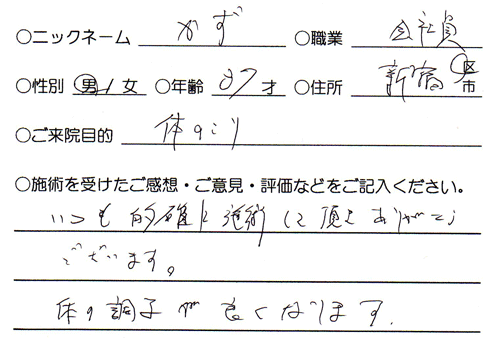 ○ニックネーム かず ○職業 会社員
○性別 男/女 ○年齢 37才 ○住所 新宿 区 市
○ご来院目的 体のこり
○施術を受けたご感想・ご意見・評価などをご記入ください。
いつも的確に施術して頂きありがとう
ございます。
体の調子が良くなります.